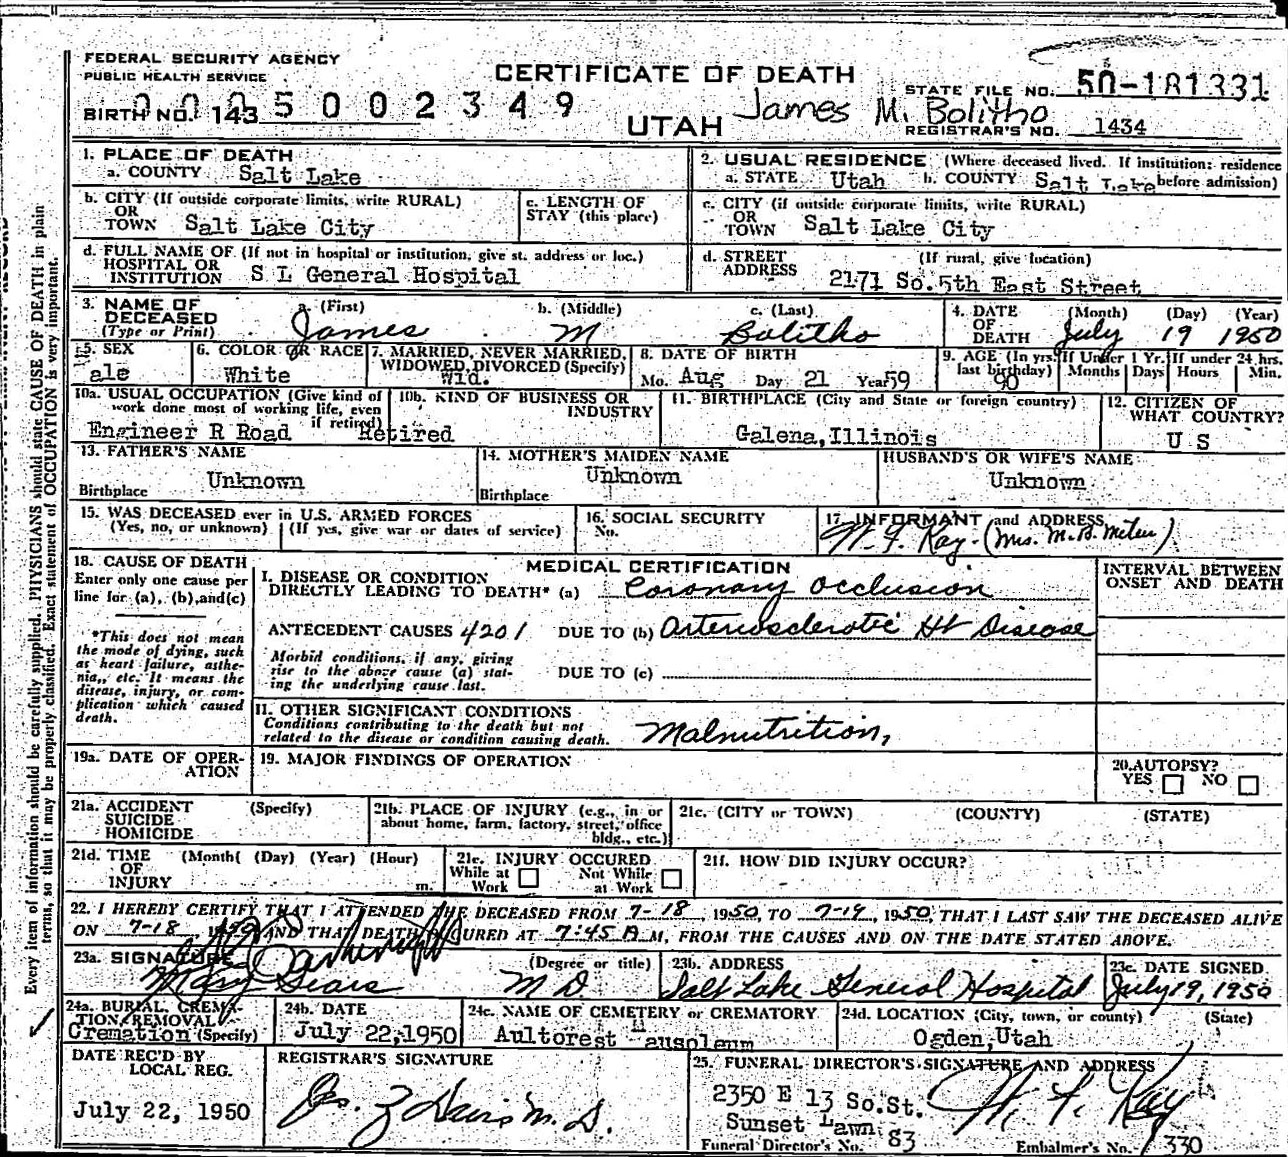 FEDERAL SECURITY AGENCY
PUBLIC HEALTH SERVICE
CERTIFICATE OF DEATH
STATE FILE NO. 50-181331
BIRTH NO. 143 5 0 0 2 3 4 9
UTAH
James M. Bolitho
REGISTRAR'S NO. 1434
1. PLACE OF DEATH
a. COUNTY Salt Lake
2. USUAL RESIDENCE (Where deceased lived. If institution: residence before admission)
a. STATE Utah b. COUNTY Salt Lake
b. CITY (If outside corporate limits, write RURAL)
OR TOWN Salt Lake City
c. LENGTH OF STAY (this place)
c. CITY (if outside corporate limits, write RURAL)
OR TOWN Salt Lake City
d. FULL NAME OF (If not in hospital or institution, give st. address or loc.)
HOSPITAL OR INSTITUTION S L General Hospital
d. STREET ADDRESS (If rural, give location)
2171 So. 5th East Street
3. NAME OF DECEASED (Type or Print)
a. (First) James
b. (Middle) M
c. (Last) Bolitho
4. DATE OF DEATH (Month) (Day) (Year)
July 19 1950
5. SEX ale
6. COLOR OR RACE White
7. MARRIED, NEVER MARRIED, WIDOWED, DIVORCED (Specify) Wid.
8. DATE OF BIRTH
Mo. Aug Day 21 Year 59
9. AGE (In yrs. last birthday) 90
If Under 1 Yr. Months Days
If under 24 hrs. Hours Min.
10a. USUAL OCCUPATION (Give kind of work done most of working life, even if retired)
Engineer R Road Retired
10b. KIND OF BUSINESS OR INDUSTRY
11. BIRTHPLACE (City and State or foreign country)
Galena, Illinois
12. CITIZEN OF WHAT COUNTRY?
U S
13. FATHER'S NAME
Unknown
Birthplace
14. MOTHER'S MAIDEN NAME
Unknown
Birthplace
HUSBAND'S OR WIFE'S NAME
Unknown
15. WAS DECEASED ever in U.S. ARMED FORCES
(Yes, no, or unknown) (If yes, give war or dates of service)
16. SOCIAL SECURITY No.
17. INFORMANT (and ADDRESS)
W. F. Kay - (Mrs. M. B.
18. CAUSE OF DEATH
Enter only one cause per line for (a), (b), and (c)
*This does not mean the mode of dying, such as heart failure, asthenia, etc. It means the disease, injury, or complication which caused death.
MEDICAL CERTIFICATION
INTERVAL BETWEEN ONSET AND DEATH
I. DISEASE OR CONDITION DIRECTLY LEADING TO DEATH* (a) Coronary Occlusion
ANTECEDENT CAUSES 4201 DUE TO (b) Arteriosclerotic Ht Disease
Morbid conditions, if any, giving rise to the above cause (a) stating the underlying cause last.
DUE TO (c)
II. OTHER SIGNIFICANT CONDITIONS
Conditions contributing to the death but not related to the disease or condition causing death.
Malnutrition,
19a. DATE OF OPERATION
19. MAJOR FINDINGS OF OPERATION
20. AUTOPSY?
YES NO
21a. ACCIDENT SUICIDE HOMICIDE (Specify)
21b. PLACE OF INJURY (e.g., in or about home, farm, factory, street, office bldg., etc.)
21c. (CITY or TOWN) (COUNTY) (STATE)
21d. TIME OF INJURY (Month) (Day) (Year) (Hour) m.
21e. INJURY OCCURED
While at Work Not While at Work
21f. HOW DID INJURY OCCUR?
22. I HEREBY CERTIFY THAT I ATTENDED THE DECEASED FROM 7-18, 1950, TO 7-19, 1950, THAT I LAST SAW THE DECEASED ALIVE
ON 7-18, 1950 AND THAT DEATH OCCURED AT 7:45 A M., FROM THE CAUSES AND ON THE DATE STATED ABOVE.
23a. SIGNATURE (Degree or title)
Mary Sears M D.
23b. ADDRESS
Salt Lake General Hospital
23c. DATE SIGNED
July 19, 1950
24a. BURIAL, CREMATION, REMOVAL (Specify)
Cremation
24b. DATE
July 22, 1950
24c. NAME OF CEMETERY or CREMATORY
Aultorest Mausoleum
24d. LOCATION (City, town, or county) (State)
Ogden, Utah
DATE REC'D BY LOCAL REG.
July 22, 1950
REGISTRAR'S SIGNATURE
25. FUNERAL DIRECTOR'S SIGNATURE AND ADDRESS
2350 E 13 So. St.
Sunset Lawn
W. F. Kay
Funeral Director's No. 83
Embalmer's No. 330
Every item of information should be carefully supplied. PHYSICIANS should state CAUSE OF DEATH in plain
terms, so that it may be properly classified. Exact statement of OCCUPATION is very important.